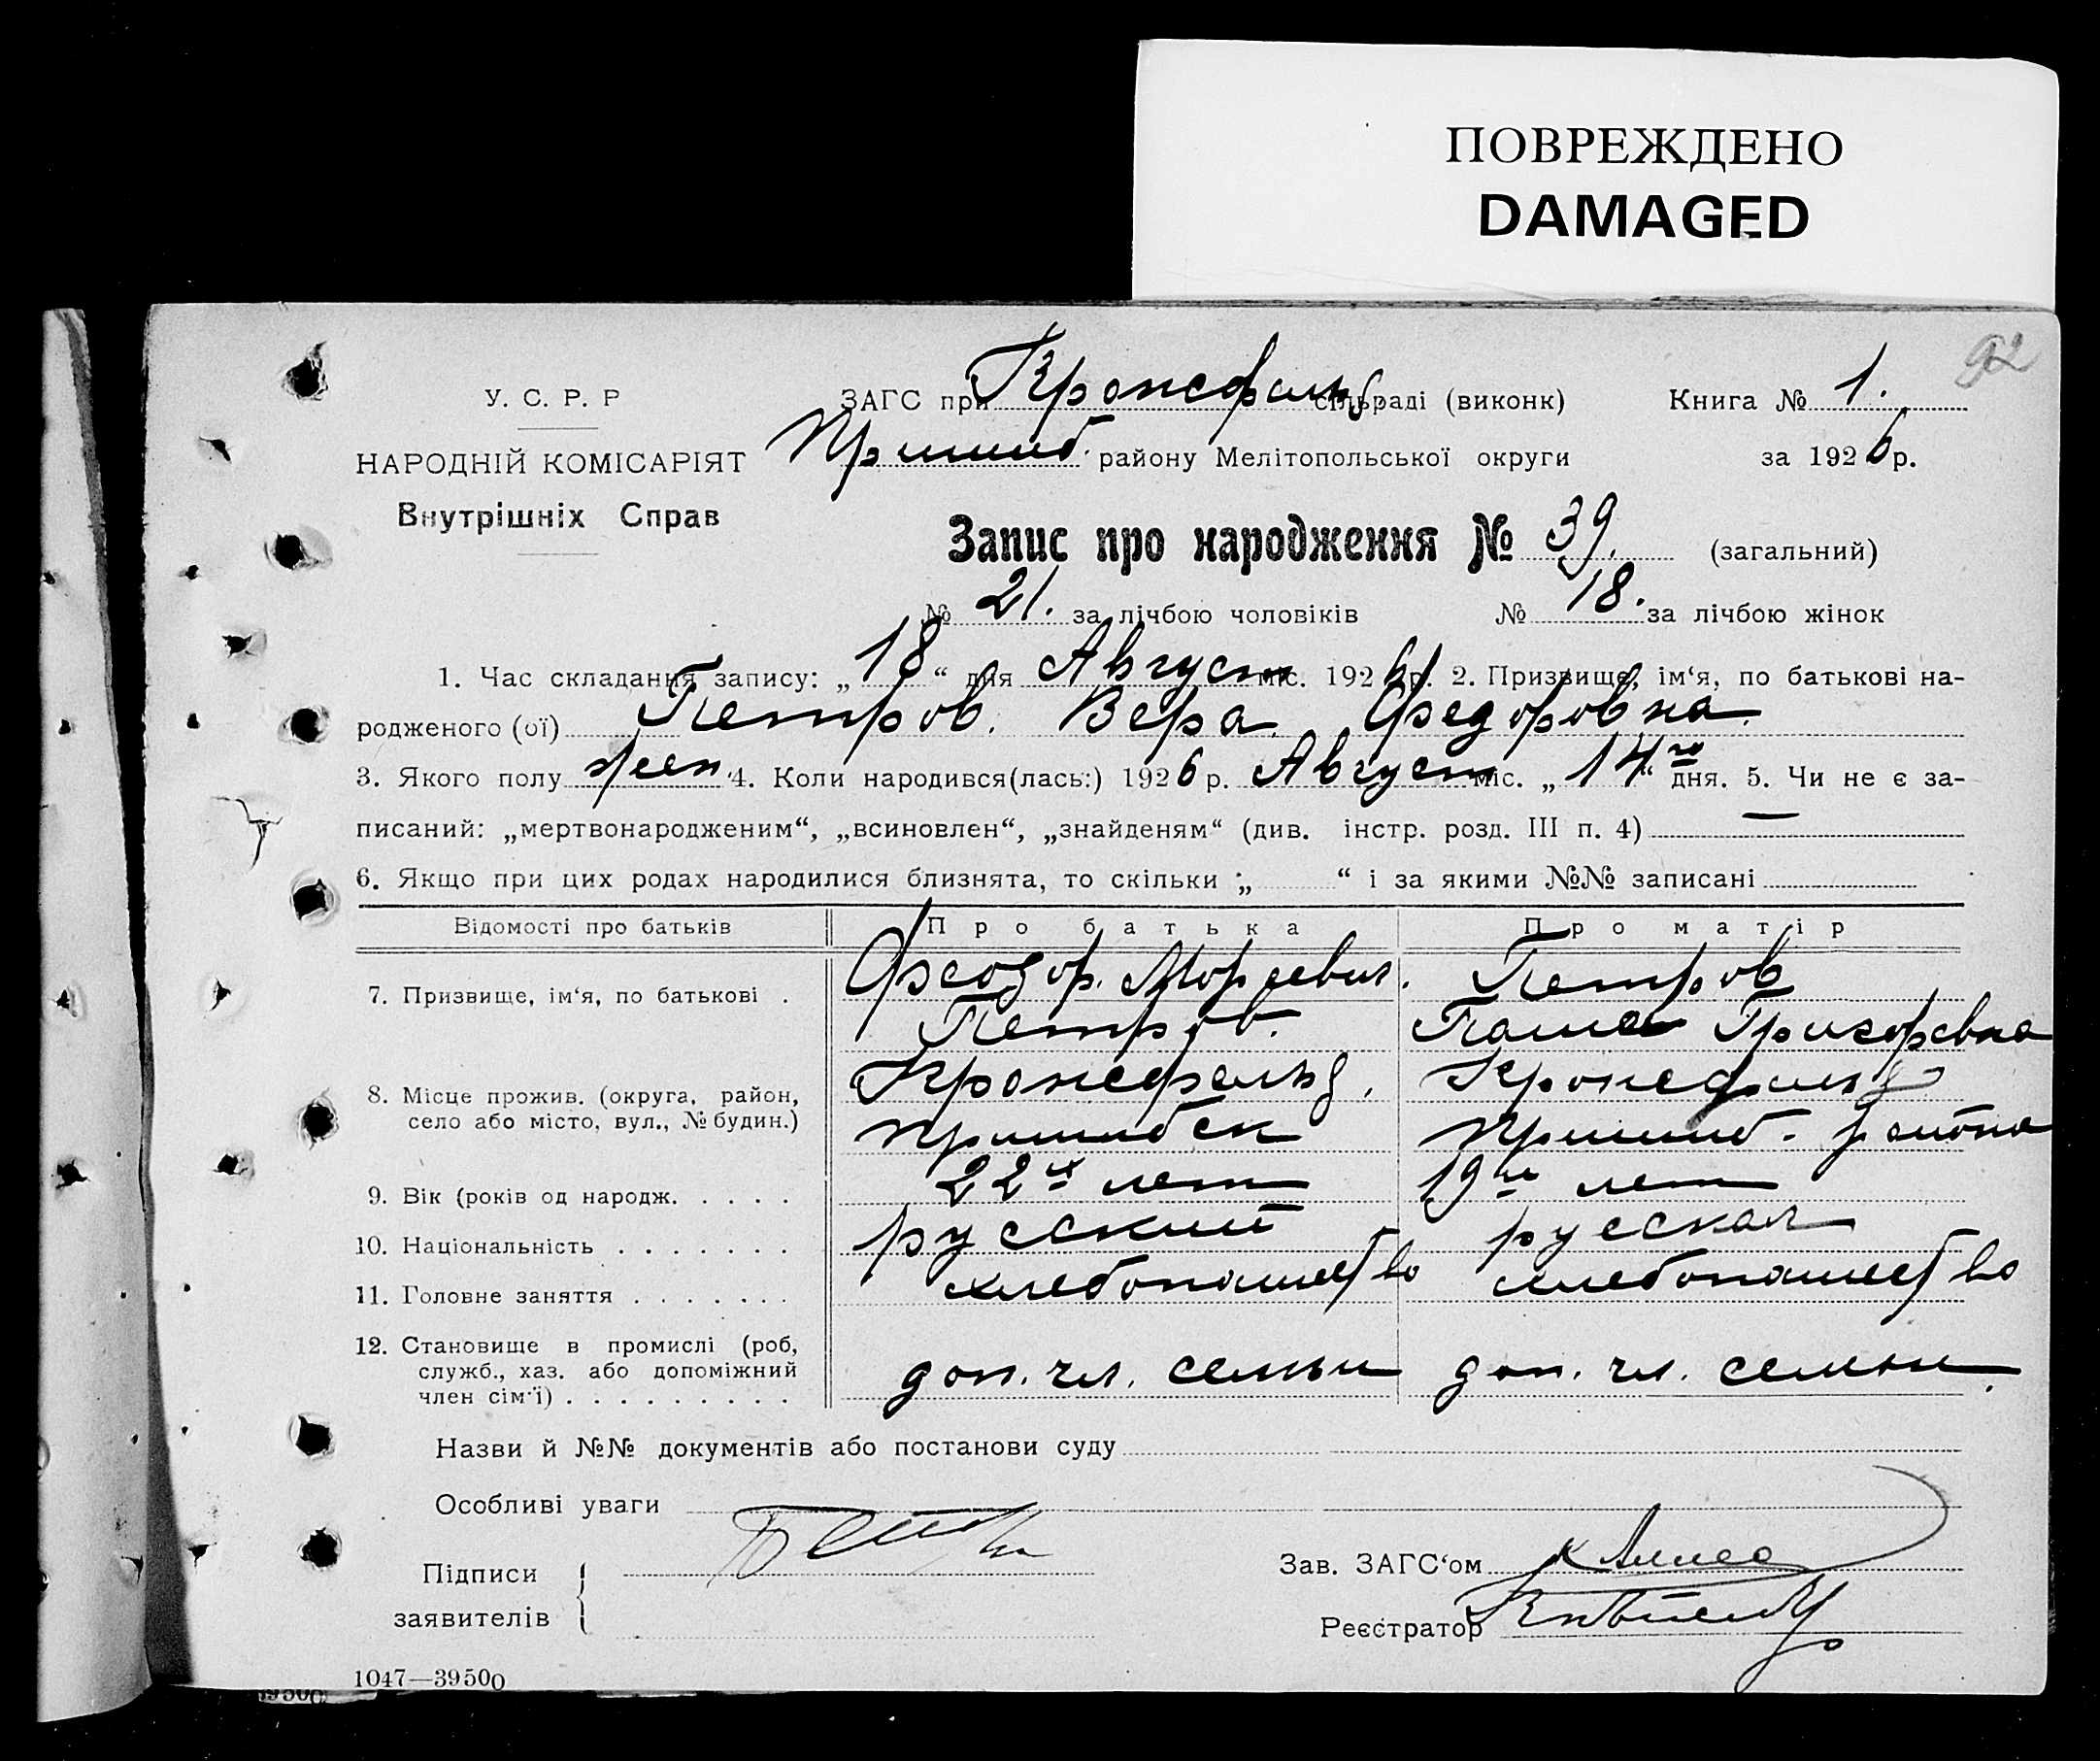 ПОВРЕЖДЕНО
DAMAGED
92
У. С. Р. Р
НАРОДНІЙ КОМІСАРІЯТ
Внутрішніх Справ
ЗАГС при Кронсфельд. сільраді (виконк) Книга № 1.
Пришиб. району Мелітопольської округи за 1926 р.
Запис про народження № 39. (загальний)
№ 21. за лічбою чоловіків № 18. за лічбою жінок
1. Час складання запису: „18“ дня Август міс. 1926 р. 2. Призвище, ім‘я, по батькові на-
родженого (ої) Петров. Вера Федоровна.
3. Якого полу жен. 4. Коли народився(лась:) 1926 р. Август міс. „14го“ дня. 5. Чи не є за-
писаний: „мертвонародженим“, „всиновлен“, „знайденям“ (див. інстр. розд. III п. 4) —
6. Якщо при цих родах народилися близнята, то скільки „ “ і за якими №№ записані
Відомості про батьків Про батька Про матір
7. Призвище, ім‘я, по батькові . Феодор. Петров. Петров Григоревна
8. Місце прожив. (округа, район, село або місто, вул., № будин.) Кронсфельд, Пришибск Кронсфельд Пришиб. района
9. Вік (років од народж. . . . . 22х лет 19ти лет
10. Національність . . . . . . . русский русская
11. Головне заняття . . . . . . . хлебопашество хлебопашество
12. Становище в промислі (роб, служб., хаз. або допоміжний член сім‘ї) . . . . . . . . . доп. чл. семьи доп. чл. семьи.
Назви й №№ документів або постанови суду
Особливі уваги
Підписи
заявителів
Зав. ЗАГС‘ом
Реєстратор
1047—39500